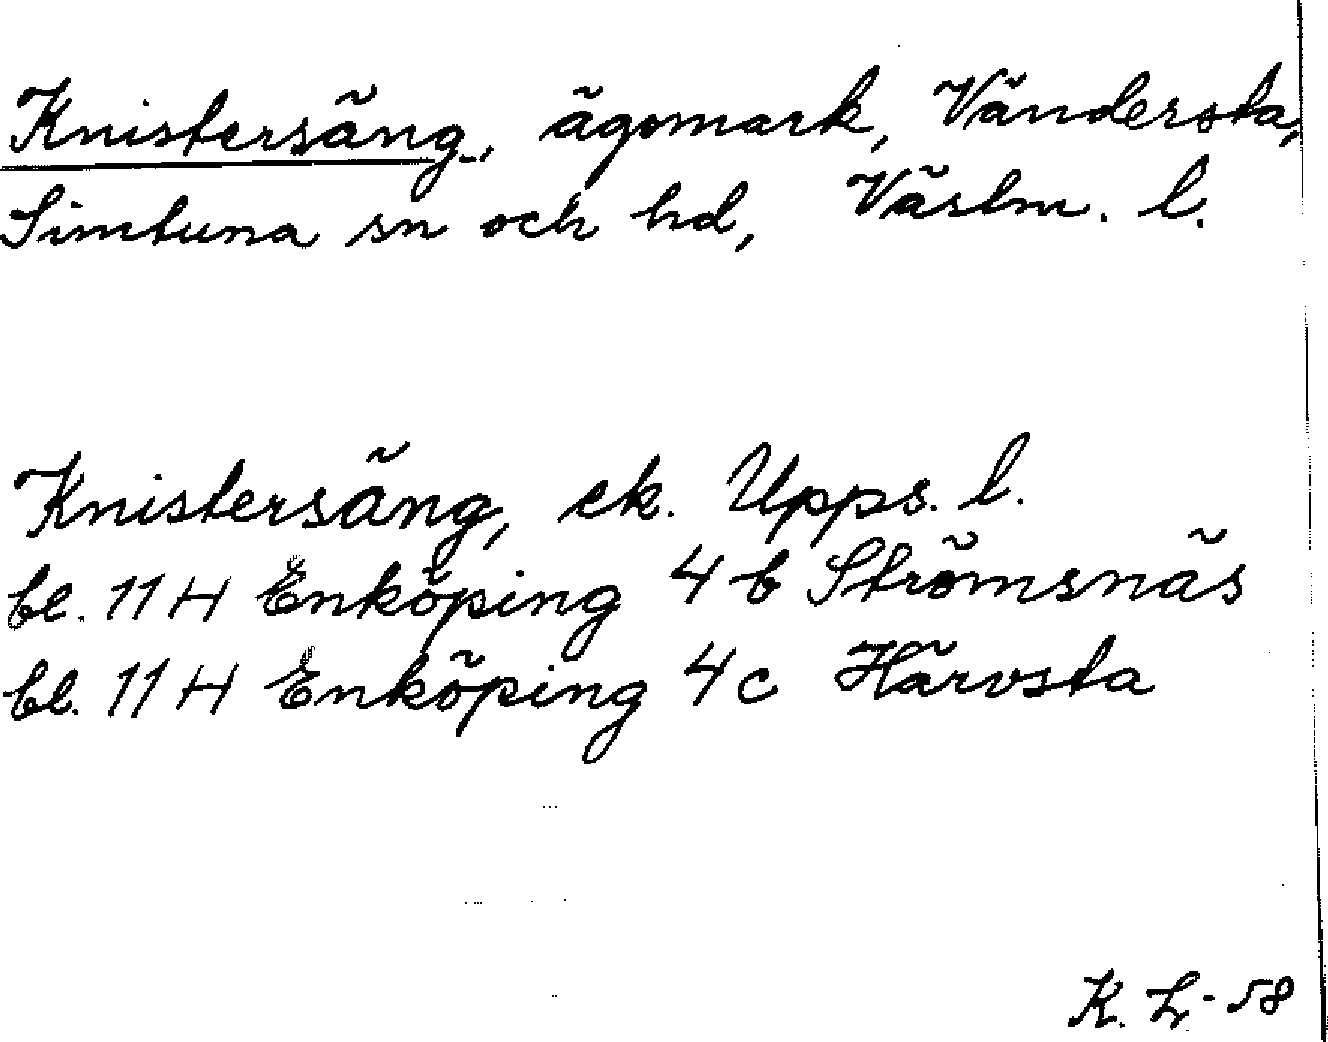 Knistersäng, ägomark, Vändersta,
Simtuna sn och hd, Västm. l.
Knistersäng, ek. Upps. l.
bl. 11 H Enköping 4 b Strömsnäs
bl. 11 H Enköping 4 c Härvsta
K. L-58